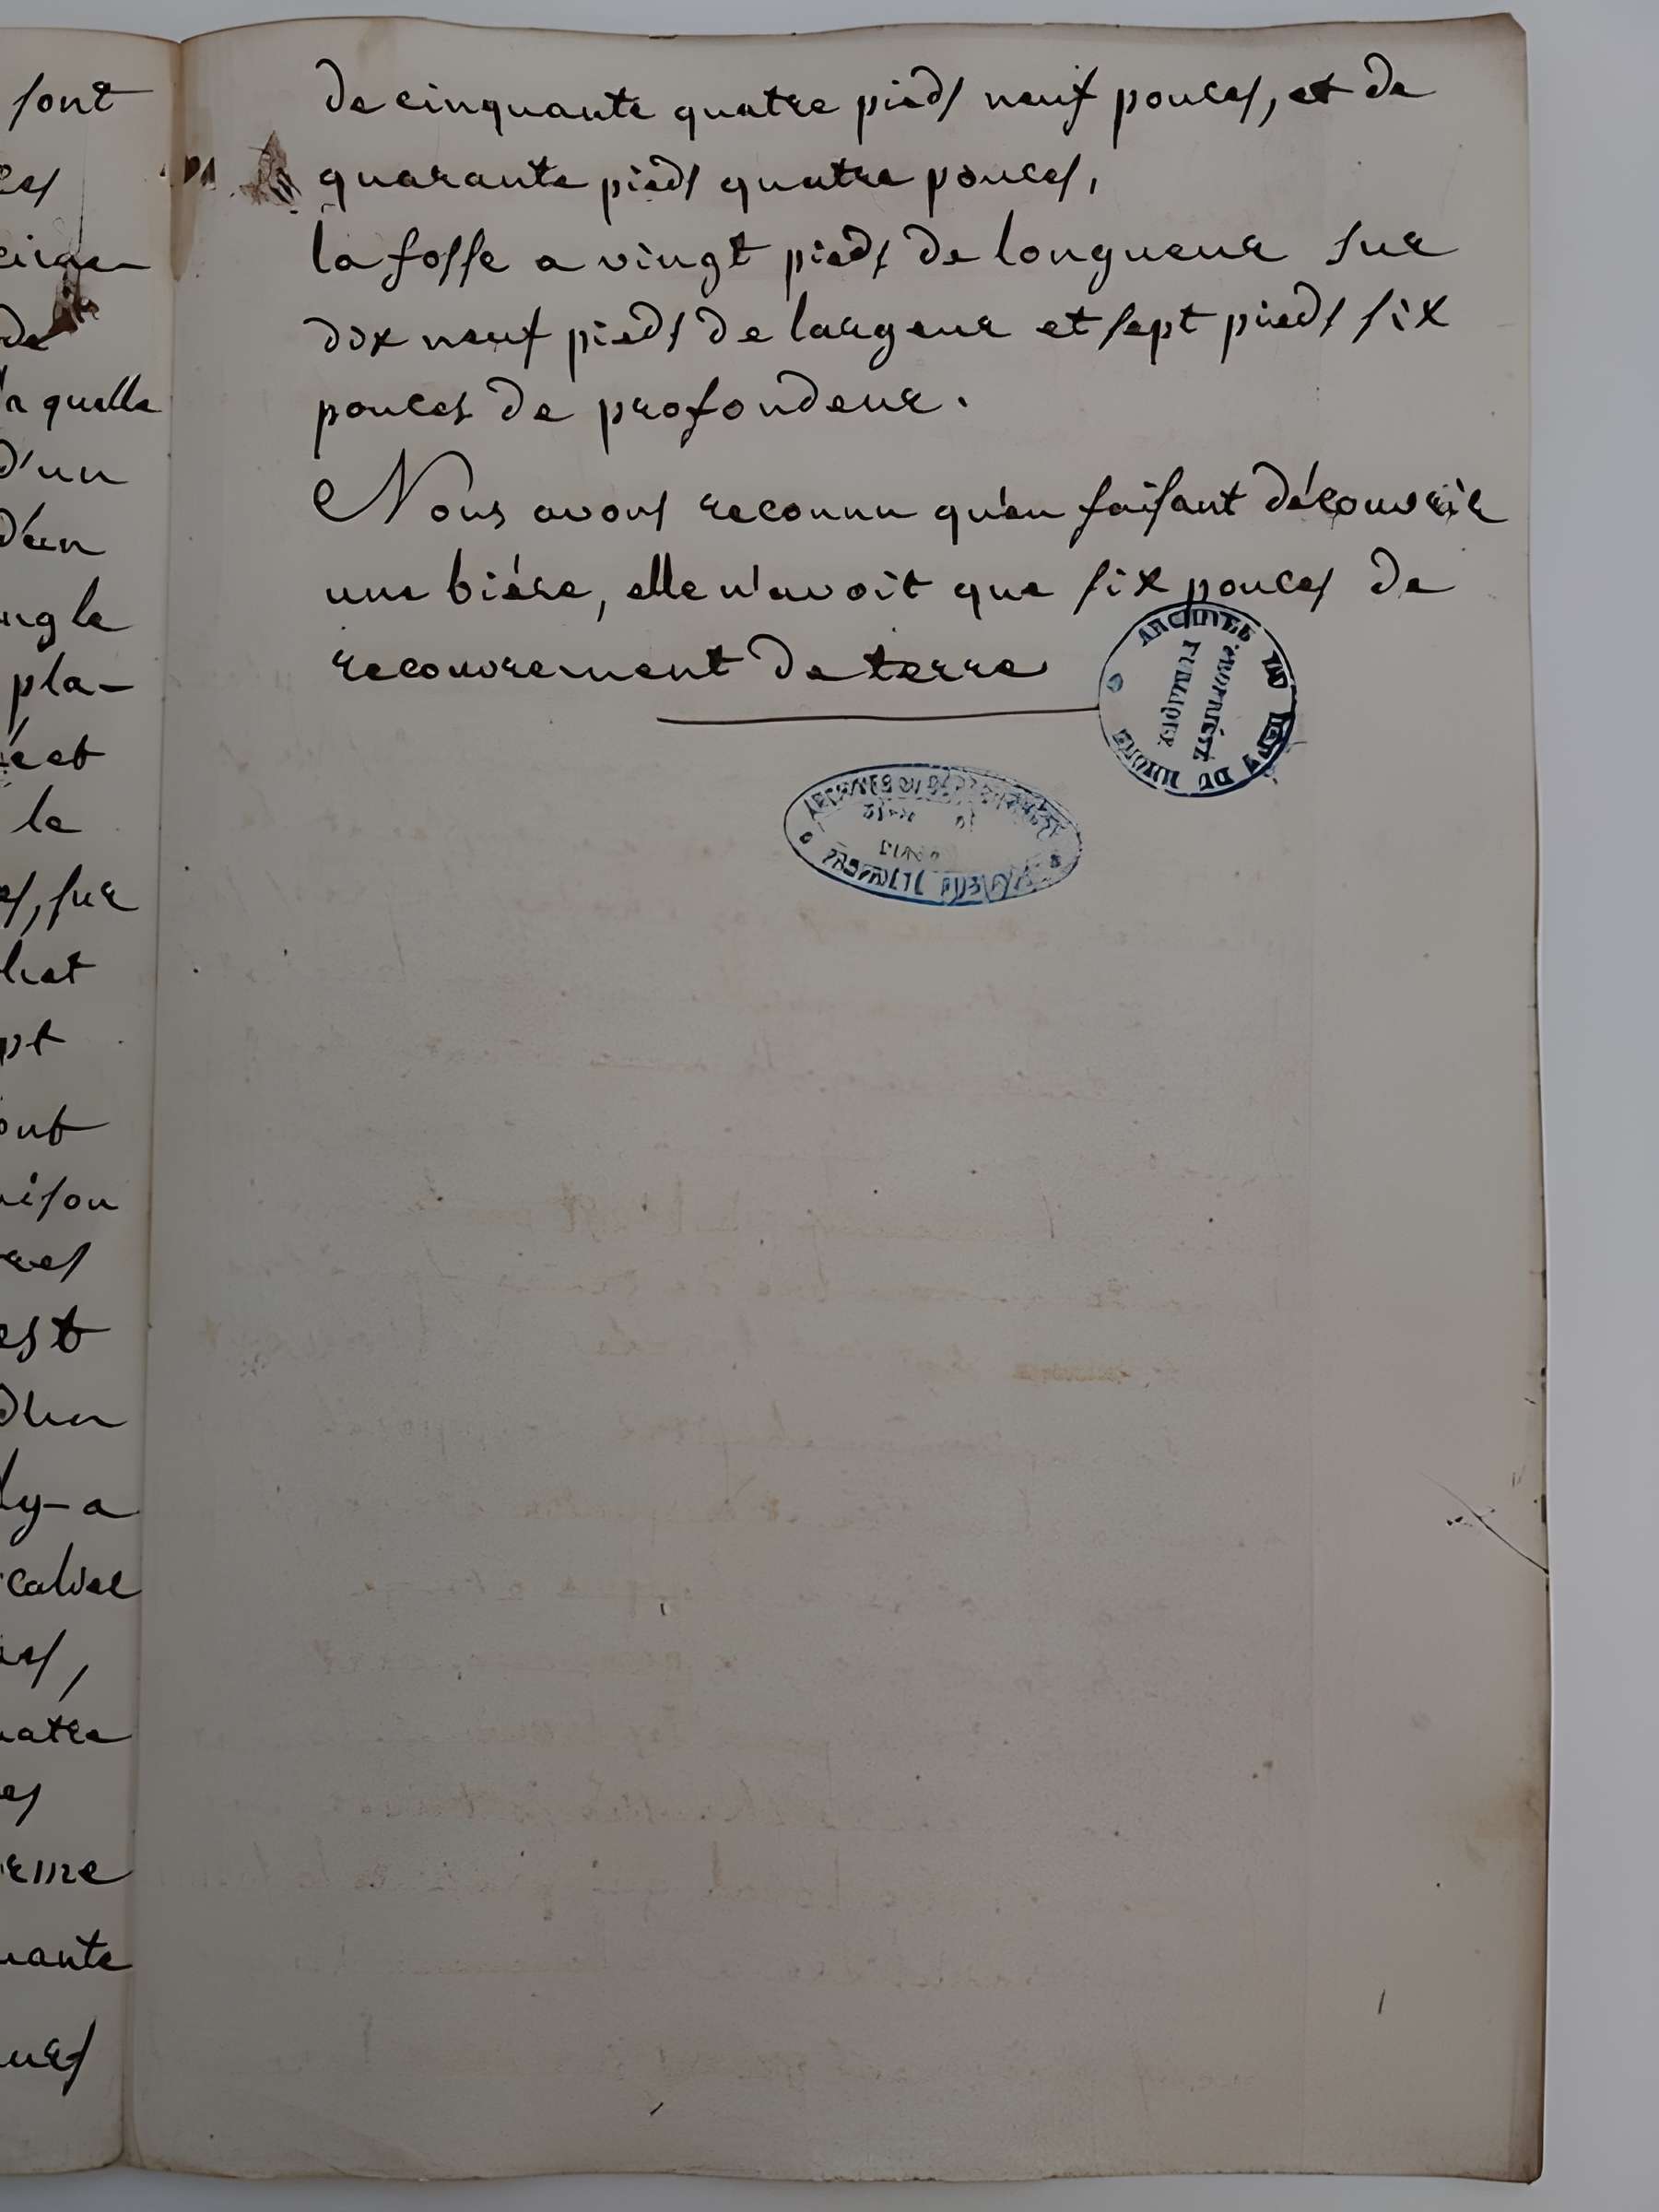 sont
es
de
quelle
d'un
d'un
ngle
pla-
le
sur
pt
ison
res
est
d'un
ly-a
es,
uatre
es
uante
de cinquante quatre pieds neuf pouces, et de
quarante pieds quatre pouces,
la fosse a vingt pieds de longueur sur
dix neuf pieds de largeur et sept pieds six
pouces de profondeur.
Nous avons reconnu qu'en faisant découvrir
une biére, elle n'avoit que six pouces de
recouvrement de terre
ARCHIVES DU DEPT DU RHONE